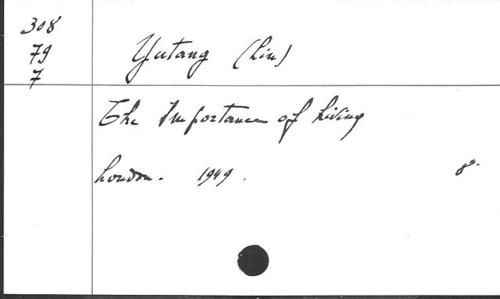 308
79
7
Yutang (Lin)
The Importance of Living
London. 1949.
8º